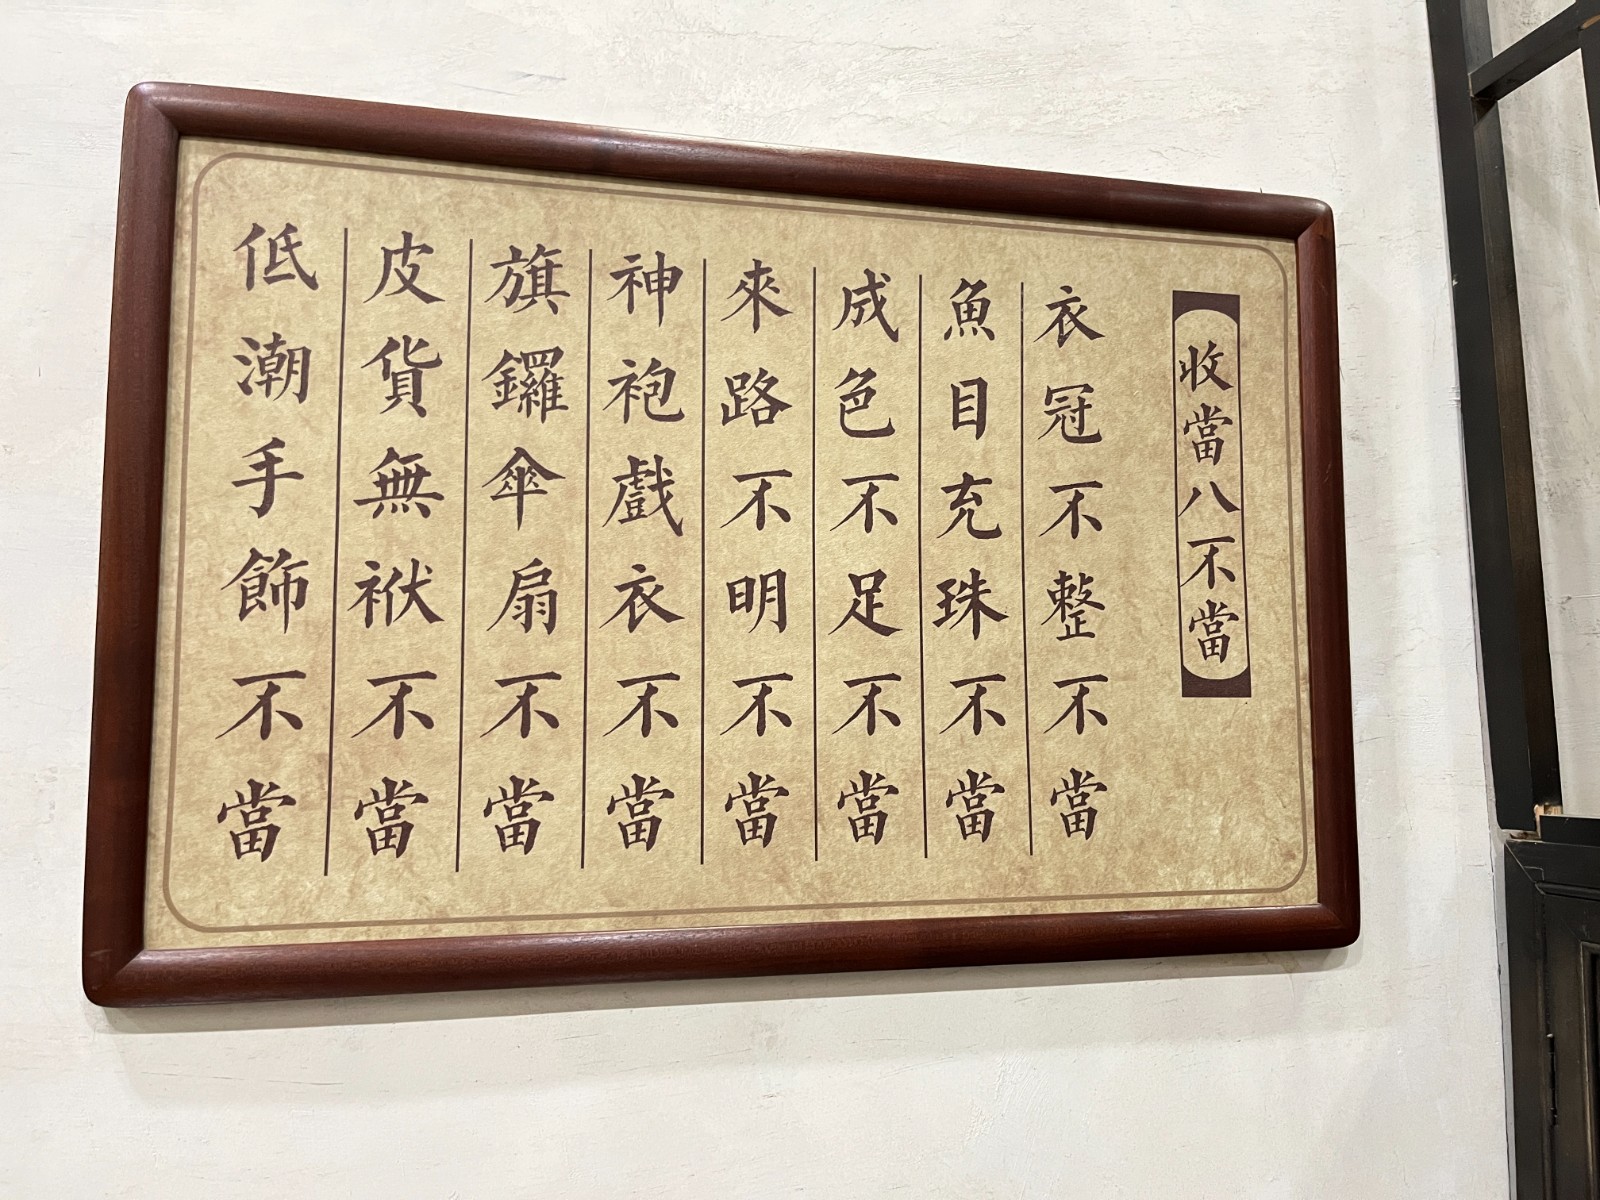 收當八不當
衣冠不整不當
魚目充珠不當
成色不足不當
來路不明不當
神袍戲衣不當
旗鑼傘扇不當
皮貨無袱不當
低潮手飾不當